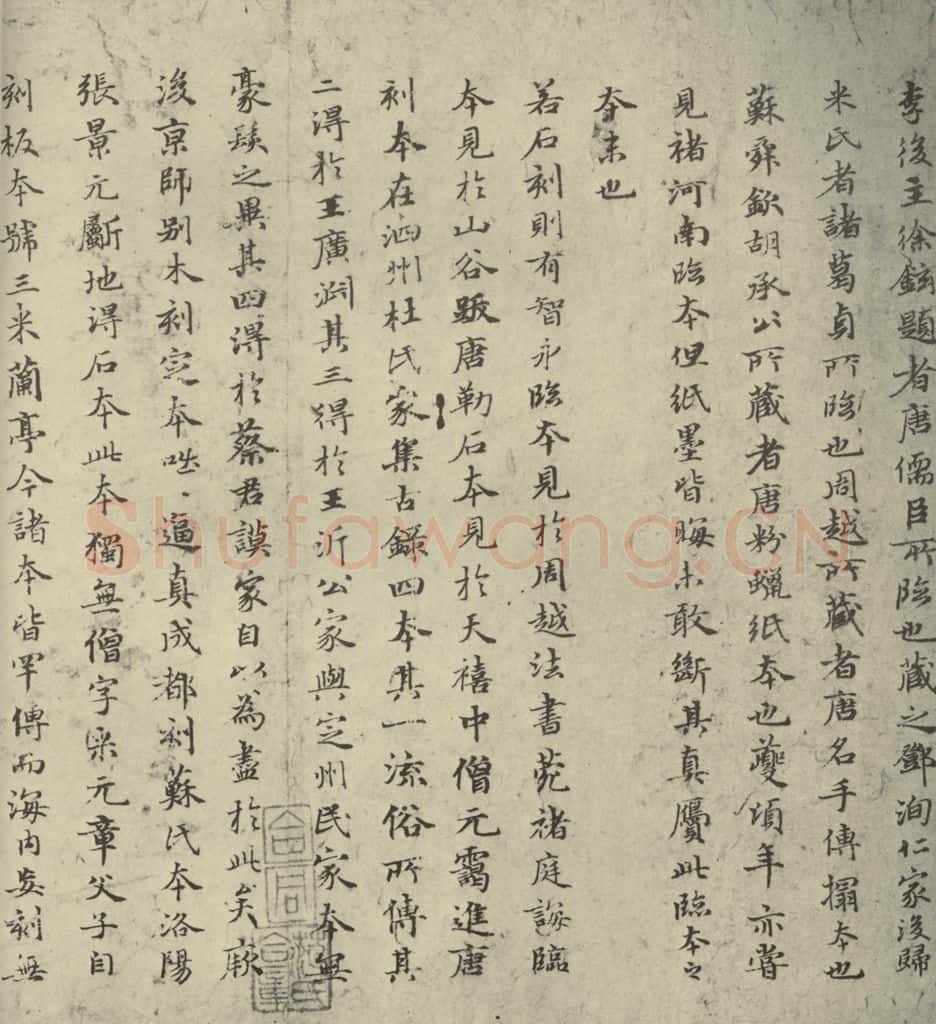 李後主徐鉉題者唐儒臣所臨也藏之鄧洵仁家後歸
米氏者諸葛貞所臨也周越所藏者唐名手傳搨本也
蘇舜欽胡承公所藏者唐粉蠟紙本也夔頃年亦嘗
見褚河南臨本但紙墨皆晦未敢斷其真贗此臨本之
夲末也
若石刻則有智永臨夲見於周越法書苑褚庭誨臨
夲見於山谷跋唐勒石夲見於天禧中僧元靄進唐
刻夲在泗州杜氏家集古錄四夲其一流俗所傳其
二得於王廣淵其三得於王沂公家與定州民家夲無
豪髮之異其四得於蔡君謨家自以為盡於此矣厥
後京師別木刻定夲咄〻逼真成都刻蘇氏夲洛陽
張景元斸地得石夲此夲獨無僧字米元章父子自
刻板夲號三米蘭亭今諸夲皆罕傳而海內妄刻無
Shufawang.CN